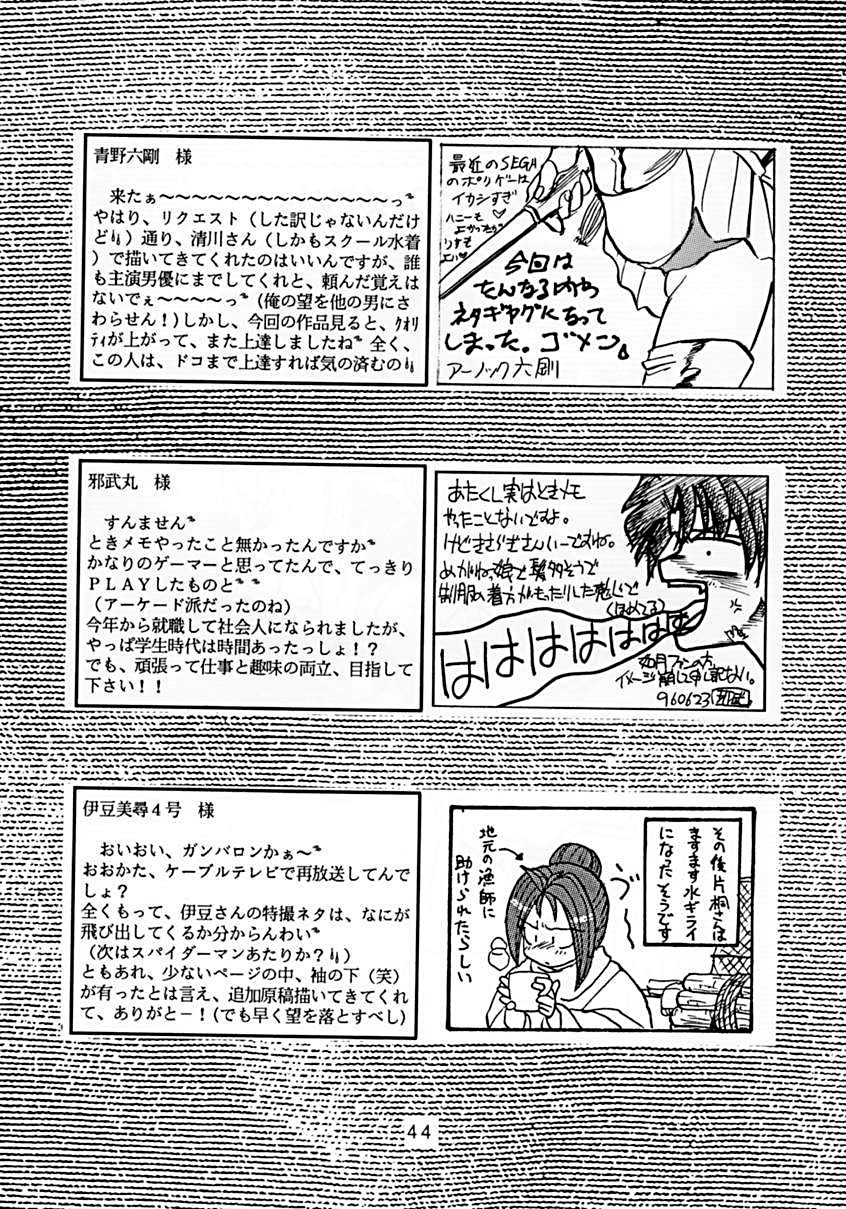 青野六剛　様
来たぁ～～～～～～～～～～～～～～っ
やはり、リクエスト（した訳じゃないんだけ
ど）通り、清川さん（しかもスクール水着
）で描いてきてくれたのはいいんですが、誰
も主演男優にまでしてくれと、頼んだ覚えは
ないでぇ～～～～っ（俺の望を他の男にさ
わらせん！）しかし、今回の作品見ると、ｸｵﾘ
ﾃｨが上がって、また上達しましたね　全く、
この人は、ドコまで上達すれば気の済むの
最近のSEGA
のポリゲーは
イカシすぎ
今回は
たんなる
ネタギャグになって
しまった。ゴメン。
アーノック六剛
邪武丸　様
すんません
ときメモやったこと無かったんですか
かなりのゲーマーと思ってたんで、てっきり
ＰＬＡＹしたものと
（アーケード派だったのね）
今年から就職して社会人になられましたが、
やっぱ学生時代は時間あったっしょ！？
でも、頑張って仕事と趣味の両立、目指して
下さい！！
あたくし実はときメモ
やったことないですよ。
けどきさらぎさんいーですね。
（ほめてる）
はははははははは
如月ファンの方、
イメージ崩して申し訳ない。
960623 邪武
伊豆美尋４号　様
おいおい、ガンバロンかぁ～
おおかた、ケーブルテレビで再放送してんで
しょ？
全くもって、伊豆さんの特撮ネタは、なにが
飛び出してくるか分からんわい
（次はスパイダーマンあたりか？）
ともあれ、少ないページの中、袖の下（笑）
が有ったとは言え、追加原稿描いてきてくれ
て、ありがと－！（でも早く望を落とすべし）
その後片桐さんは
ますます水ギライ
になったそうです
地元の漁師に
助けられたらしい
44